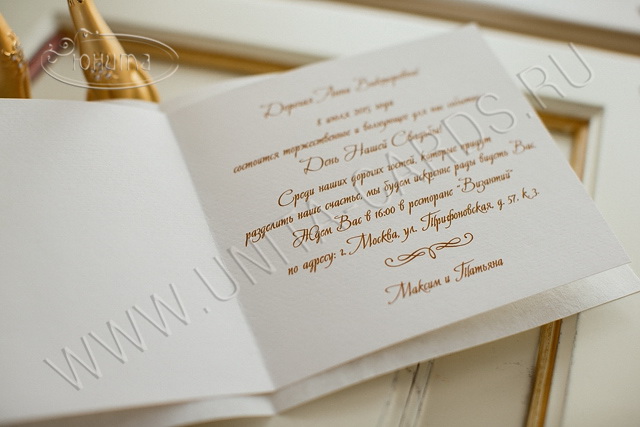 Юнита
Дорогая Анна Викторовна!
8 июля 2015 года
состоится торжественное и волнующее для нас событие
День Нашей Свадьбы!
Среди наших дорогих гостей, которые придут
разделить наше счастье, мы будем искренне рады видеть Вас
Ждем Вас в 16:00 в ресторане "Византий"
по адресу: г. Москва, ул. Трифоновская, д. 57, к.3.
Максим и Татьяна
WWW.UNITA-CARDS.RU